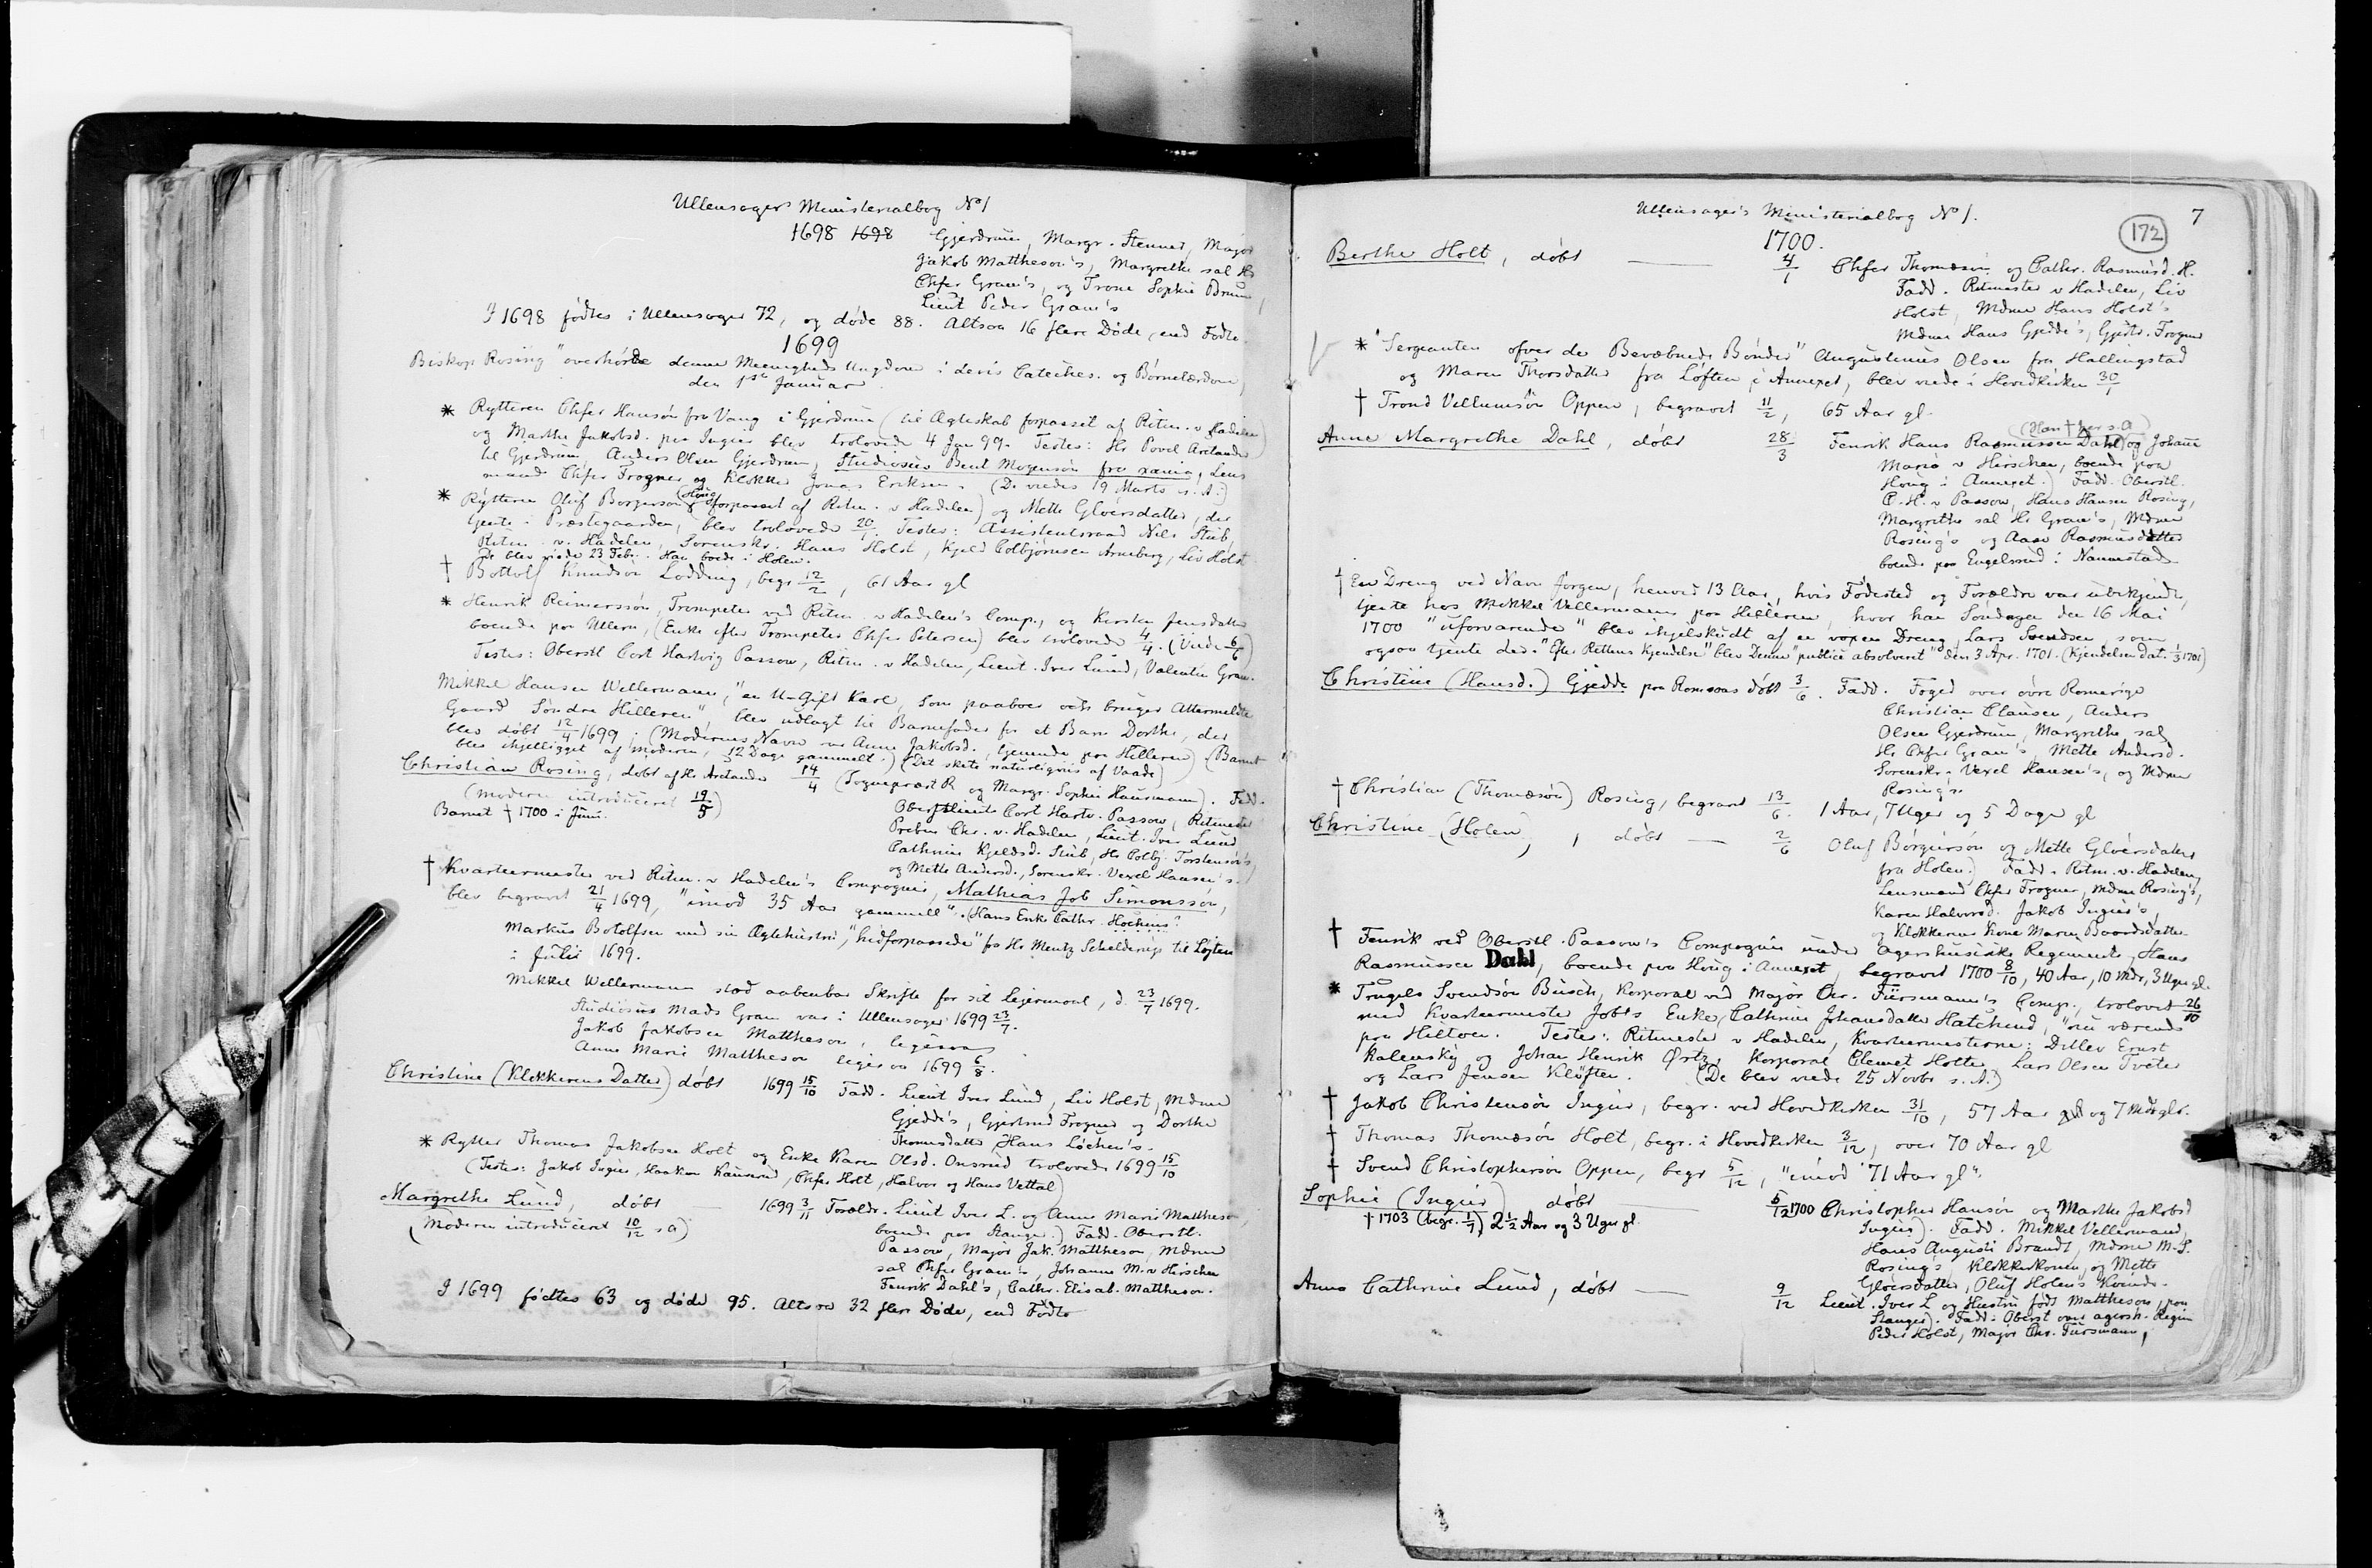 Ullensager Ministerialbog No 1
1698 1698 Gjerdrum, Margr. Stenner, Major
Jakob Mattheson's, Margrethe sal Hr
Chfer Gram's, og Trone Sophie
Lieut Peder Gram's
I 1698 fødtes i Ullensager 72, og døde 88. Altsaa 16 flere Døde, end Fødte.
1699
Biskop Rosing "overhørde denne Meenigheds Ungdom i deris Cateches. og Børnelærdom,
den 1ste Januar
* Rytteren Chfer Hansøn fra Vang i Gjerdrum (til Ægteskab forpasset af Ritm. v Hadelen)
og Marthe Jakobsd. paa Ingier blev trolovede 4 Jan 99. Testes: Hr Povel Aretander
til Gjerdrum, Anders Olsen Gjerdrum, Studiosus Bent Mogensøn fra xania, Lens
mand Chfer Frogner og Klokker Jonas Eriksen. (De viedes 19 Marts s. A.)
* Rytteren Oluf Borgersøn (Houg) (forpasset af Ritm. v Hadelen) og Mette Gloersdatter, der
tjente i Præstegaarden, blev trolovede 20/1. Testes: Assistentsraad Nils Stub,
Ritm. v. Hadelen, Sorenskr. Hans Holst, Kjeld Colbjørnsen Arneberg, Liv Holst
De blev viede 23 Febr. Han boede i Holen.
† Bottolf Knudsøn Lodding, begr 12/2, 61 Aar gl
* Henrik Reimerssøn, Trompeter ved Ritm. v Hadelen's Comp., og Kirsten Jensdatter
boende paa Ullern, (Enke efter Trompeter Chfer Petersen) blev trolovede 4/4. (Viede 6/6)
Testes: Oberstl Cort Hartvig Passow, Ritm. v Hadelen, Lieut. Iver Lund, Valentin Gram.
Mikkel Hansen Wellermann, "en U-Gift Karl, som paaboer och bruger Attermeldte
Gaard Søndre Hilleren", blev udlagt til Barnefader for et Barn Dorthe, der
blev døbt 12/4 1699. (Moderens Navn var Anne Jakobsd., tjenende paa Hilleren) (Barnet
blev ihjelligget af moderen, 12 Dage gammelt.) (Det skete naturligviis af Vaade)
Christian Rosing, døbt af Hr Aretander 14/4 (Sognepræst R og Margr. Sophie Hausmann). Fadd.
(Moderen introduceret 19/5) Oberstlieut. Cort Hartv. Passow, Ritmester
Barnet † 1700 i Juni. Preben Chr. v. Hadelen, Lieut. Iver Lund,
Cathrine Kjeldsd. Stub, Hr Colbj. Torstensøn's,
og Mette Andersd., Sorenskr. Vexel Hansen's.
† Kvarteermester ved Ritm. v Hadelen's Compagni, Mathias Job Simonssøn,
blev begravet 21/4 1699, "imod 35 Aar gammell". (Hans Enke Cathr. Hochens?
Markus Botolfsen med sin Ægtehustru, "hidforpassede" fra Hr Mentz Schelderup til Løjten
i Julii 1699.
Mikkel Wellermann stod aabenbar Skrifte for sit Lejermaal, d. 23/7 1699.
Studiosus Mads Gram var i Ullensager 1699 23/7.
Jakob Jakobsen Mattheson, ligesaa
Anne Marie Mattheson ligesaa 1699 6/8.
Christine (Klokkerens Datter) døbt 1699 15/10 Fadd. Lieut Iver Lund, Liv Holst, Mdme
Gjedde's, Gjertrud Frogner og Dorthe
Thomasdatter, Hans Løchen's.
* Rytter Thomas Jakobsen Holt og Enke Karen Olsd. Onsrud trolovede 1699 15/10
(Testes: Jakob Ingier, Haakon Kaurerud, Chfer Holt, Halvor og Hans Vettal)
Margrethe Lund, døbt — 1699 3/11 Forældr. Lieut Iver L. og Anne Marie Mattheson,
(Moderen introduceret 10/12 s a) boende paa Stanger.) Fadd. Oberstl.
Passow, Major Jak. Mattheson, Mdme
sal Chfer Gram's, Johanne M. v Hirschen
Fenrik Dahl's, Cathr. Elisab. Mattheson.
I 1699 fødtes 63 og døde 95. Altsaa 32 flere Døde, end Fødte
Ullensager's Ministerialbog No 1. 7
172
1700.
Berthe Holt, døbt — 4/1 Chfer Thomæsøn og Cathr. Rasmusd. H.
Fadd. Ritmester v Hadelen, Liv
Holst, Mdme Hans Holst's
Mdme Hans Gjedde's, Gjertr. Frogner
* "Sergeanten ofver de Bevæbnede Bønder" Augustinus Olsen fra Hallingstad
og Maren Thorsdatter fra Løften, i Annexet, blev viede i Hovedkirken 30/1
† Trond Vellumsøn Oppen, begravet 11/2, 65 Aar gl.
(Han † her s. A)
Anne Margrethe Dahl, døbt 28/3 Fenrik Hans Rasmussen Dahl og Johanne
Maria v Hirschen, boende paa
Houg i Annexet.) Fadd. Oberstl.
C. H. v Passow, Hans Hansen Rosing,
Margrethe sal Hr Gram's, Mdme
Rosing's og Aase Rasmusdatter
boende paa Engelsrud i Nannestad
† En Dreng ved Navn Jørgen, henved 13 Aar, hvis Fødested og Forældre var ubekjendt,
tjente hos Mikkel Vellermann paa Hilleren, hvor han Søndagen den 16 Mai
1700 "uforvarende" blev ihjelskudt af en voxen Dreng, Lars Svendsen, som
ogsaa tjente der. "Efter Rettens Kjendelse" blev Denne "publicè absolveret" den 3 Apr. 1701. (Kjendelsen dat. 1/3 1701)
Christine (Hansd.) Gjedde paa Romsaas døbt 3/6. Fadd. Foged over øvre Romerige
Christian Clausen, Anders
Olsen Gjerdrum, Margrethe sal
Hr Chfer Gram's, Mette Andersd.
Sorenskr. Vexel Hansen's, og Mdme
Rosing's.
† Christian (Thomæsøn) Rosing, begravet 13/6. 1 Aar, 7 Uger og 5 Dage gl
Christine (Holen), døbt — 2/6 Oluf Borgersøn og Mette Gloersdatter
fra Holen.) Fadd. Ritm. v. Hadelen,
Lensmand Chfer Frogner, Mdme Rosing's,
Karen Halvorsd. Jakob Ingier's,
og Klokkerens Kone Maren Baardsdatter
† Fenrik ved Oberstl. Passow's Compagnie under Agershusiske Regiment, Hans
Rasmussen Dahl, boende paa Houg i Annexet, begravet 1700 8/10, 40 Aar, 10 Mdr, 3 Uger gl.
* Trugels Svendsøn Busch, Korporal ved Major Chr. Fürsmann's Comp., trolovet 26/10
med Kvarteermester Jobts Enke, Cathrine Johansdatter Hatchend, "nu værende
paa Hiltoen. Testes: Ritmester v Hadelen, Kvarteermesterne: Ditlev Ernst
Kalensky og Johan Henrik Ørtz, Korporal Clemet Holter, Lars Olsen Tveter
og Lars Jensen Kløften. (De blev viede 25 Novbr s. A.)
† Jakob Christensøn Ingier, begr. ved Hovedkirken 31/10, 57 Aar gl og 7 Mdr glr.
† Thomas Thomæsøn Holt, begr. i Hovedkirken 3/12, over 70 Aar gl
† Svend Christophersøn Oppen, begr 5/12, "imod 71 Aar gl".
Sophie (Ingier) døbt — 5/12 1700 Christopher Hansøn og Marthe Jakobsd
† 1703 (begr. 1/7) 2 1/2 Aar og 3 Uger gl. Ingier). Fadd. Mikkel Vellermand,
Hans Augusti Brandt, Mdme M. S.
Rosing's, Klokkerkonen, og Mette
Gloersdatter, Oluf Holens Kvinde.
Anne Cathrine Lund, døbt — 9/12 Lieut. Iver L og Hustru født Mattheson, paa
Stanger). Fadd: Oberst over agersh. Regim
Peder Holst, Major Chr. Fürsmann,